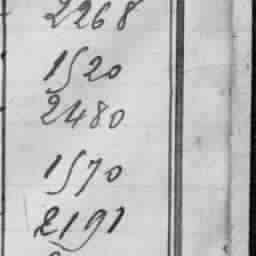 2268
1520
2480
1570
2191